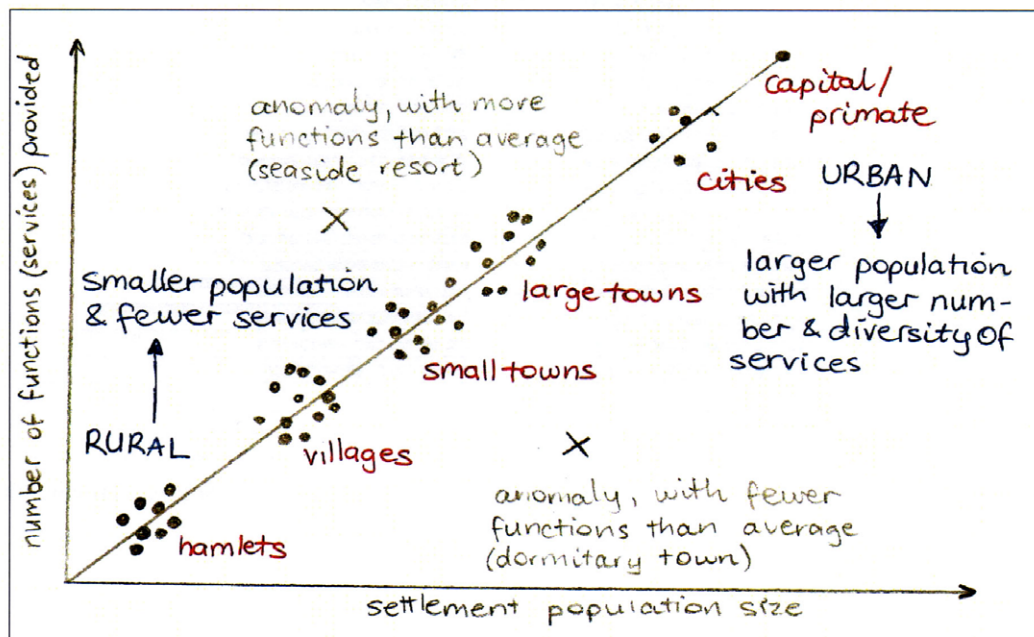 number of functions (services) provided
anomaly, with more
functions than average
(seaside resort)
capital/
primate
cities
URBAN
larger population
with larger num-
ber & diversity of
services
smaller population
& fewer services
large towns
small towns
RURAL
villages
anomaly, with fewer
functions than average
(dormitary town)
hamlets
settlement population size